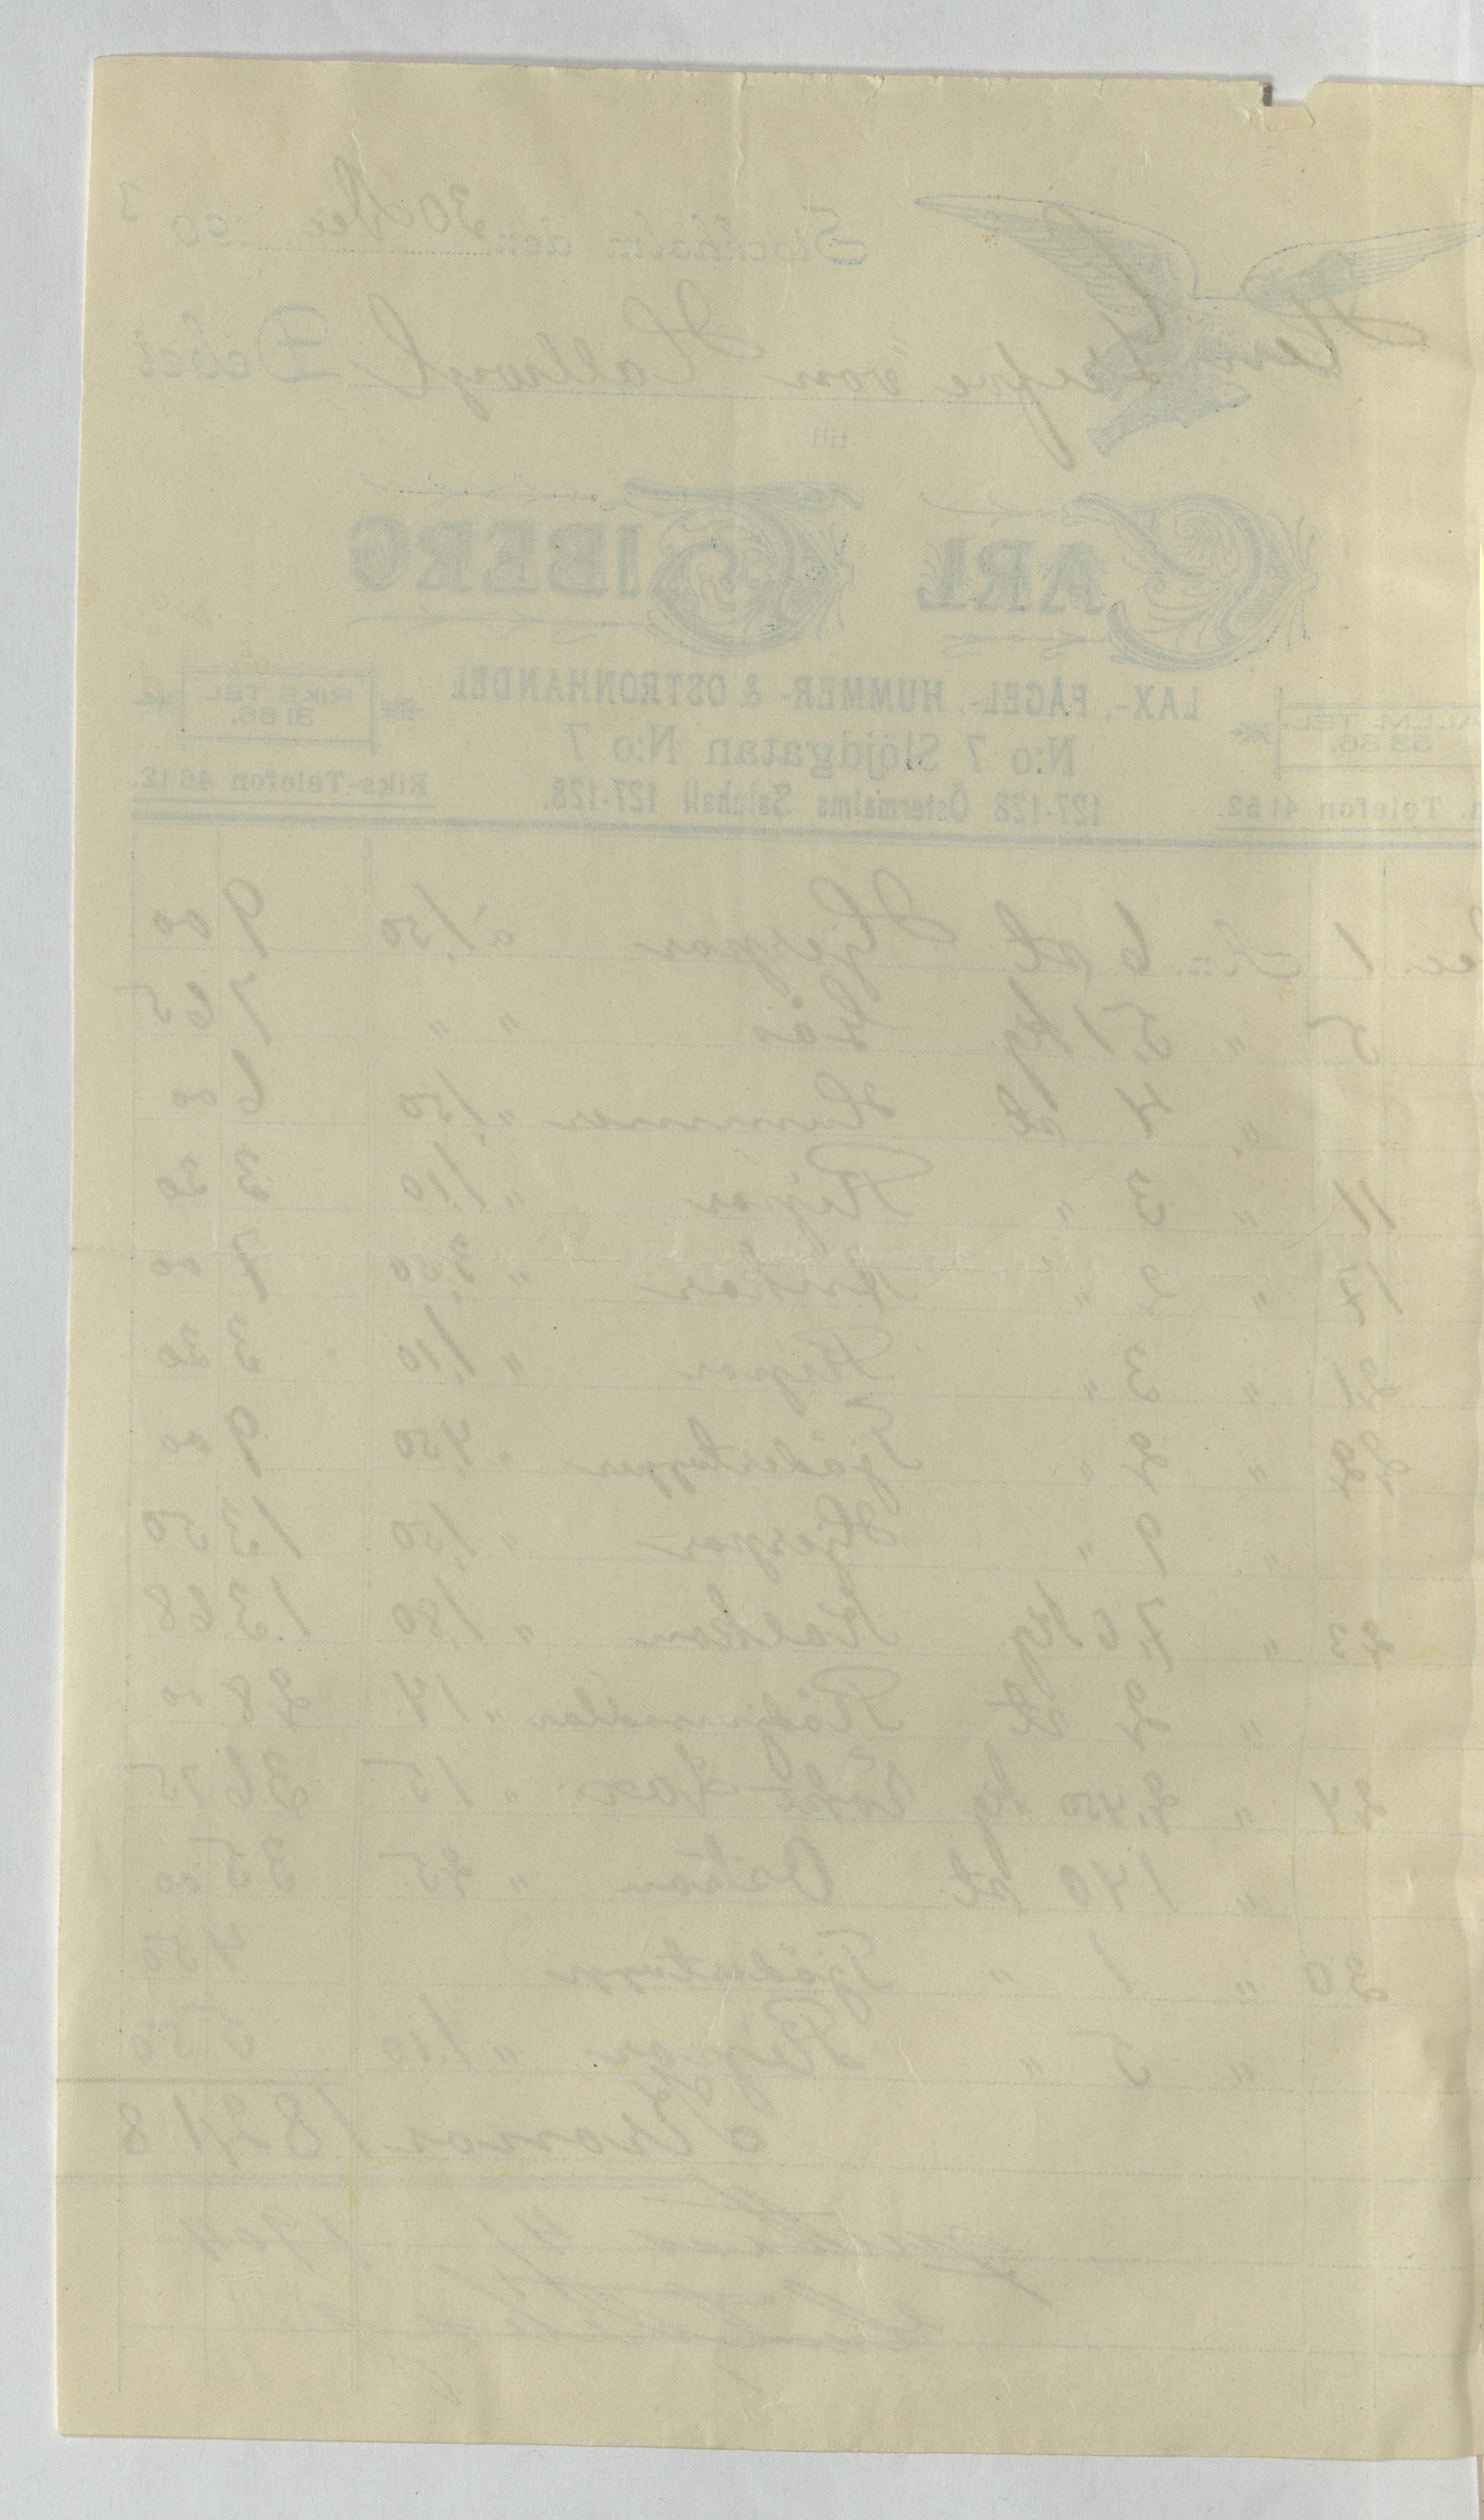 Stockholm den 30 Dec 1903
Herr Grefve von Hallwyl Debet
till
CARL TIBERG
LAX-, FÅGEL-, HUMMER- & OSTRONHANDEL
N:o 7 Slöjdgatan N:o 7
127-128 Östermalms Saluhall 127-128.
ALLM. TEL. 5886.
RIKS TEL. 3186.
Telefon 4152.
Riks-Telefon 4612.
1 6 st Hjerpar à 1,50 9 00
5 " 5,1 kg Gås " " 7 65
" 4 st Hummer " 1,50 6 00
11 " 3 " Ripor " 1,10 3 30
17 " 2 " " 3,50 7 00
21 " 3 " Ripor " 1,10 3 30
22 " 2 " Tjädertuppar " 4,50 9 00
" 9 " Hjerpar " 1,50 13 50
23 " 7,6 kg Kalkon " 1,80 13 68
" 2 st " 14 28 00
24 " 2,450 kg Rökt Lax " 15 36 75
" 140 st Ostron " 25 35 00
30 " 1 " Tjädertupp 4 50
" 5 " Ripor " 1,10 5 50
Kronor 182 18
1904